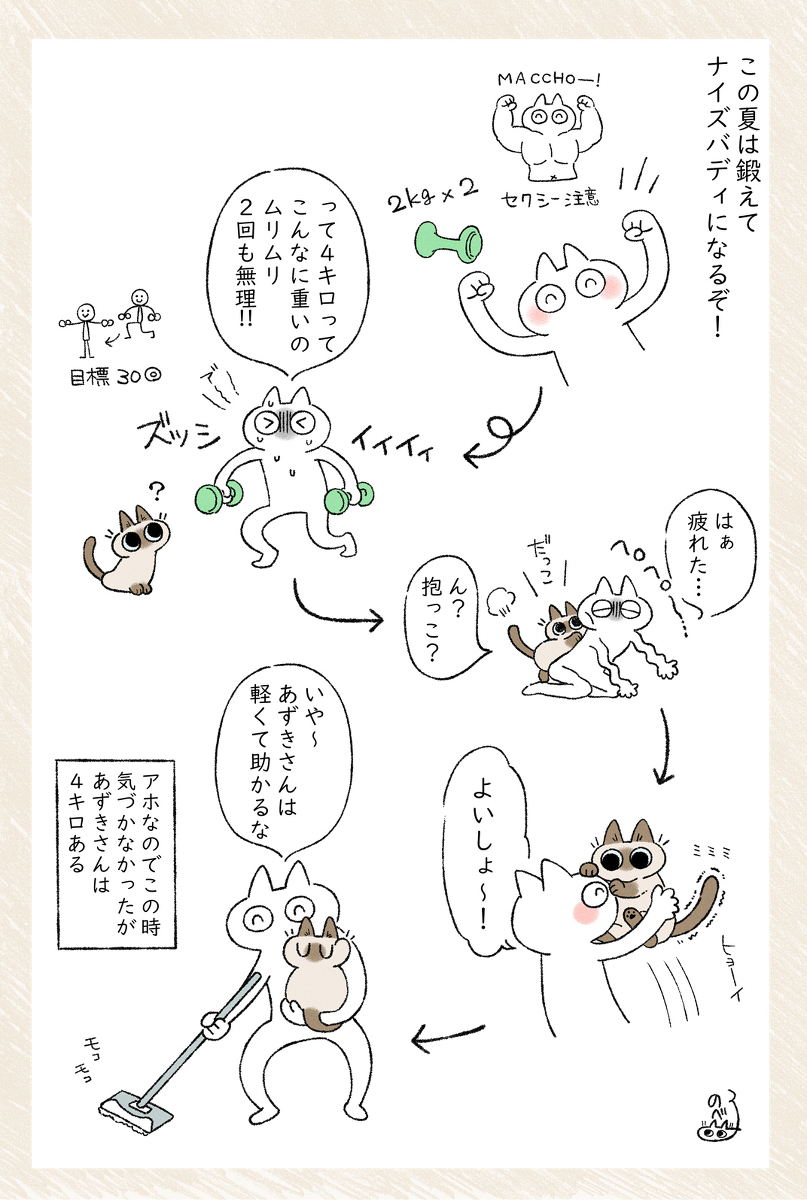 この夏は鍛えて
ナイズバディになるぞ！
MACCHOー！
セクシー注意
2kg×2
って４キロって
こんなに重いの
ムリムリ
２回も無理!!
目標30回
ズッシ
ィィィィ
？
はぁ
疲れた…
ヘロヘロ〜
だっこ
ん？
抱っこ？
よいしょ〜！
ヒョーイ
いや〜
あずきさんは
軽くて助かるな
アホなのでこの時
気づかなかったが
あずきさんは
４キロある
モコ
モコ
のべ